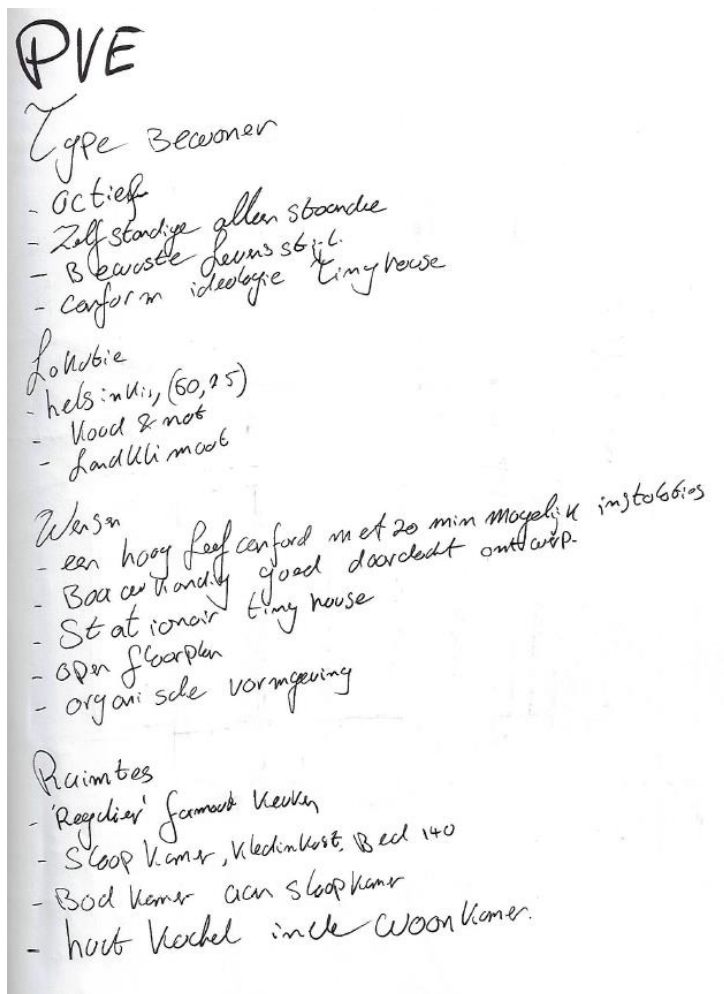 PVE
Type Bewoner
- actief
- Zelfstandige alleen staande
- Bewuste levensstijl.
- conform ideologie tiny house
Lokatie
- helsinkis, (60,25)
- Koud & nat
- Landklimaat
Wensen
- een hoog leef comford met zo min mogelijk instalaties
- Bouwkundig goed doordacht ontwerp.
- Stationair tiny house
- open floorplan
- organische vormgeving
Ruimtes
- 'Regulier' formaat keuken
- Slaap kamer, kledinkast, Bed 140
- Bad kamer aan slaapkamer
- hout kachel in de woonkamer.